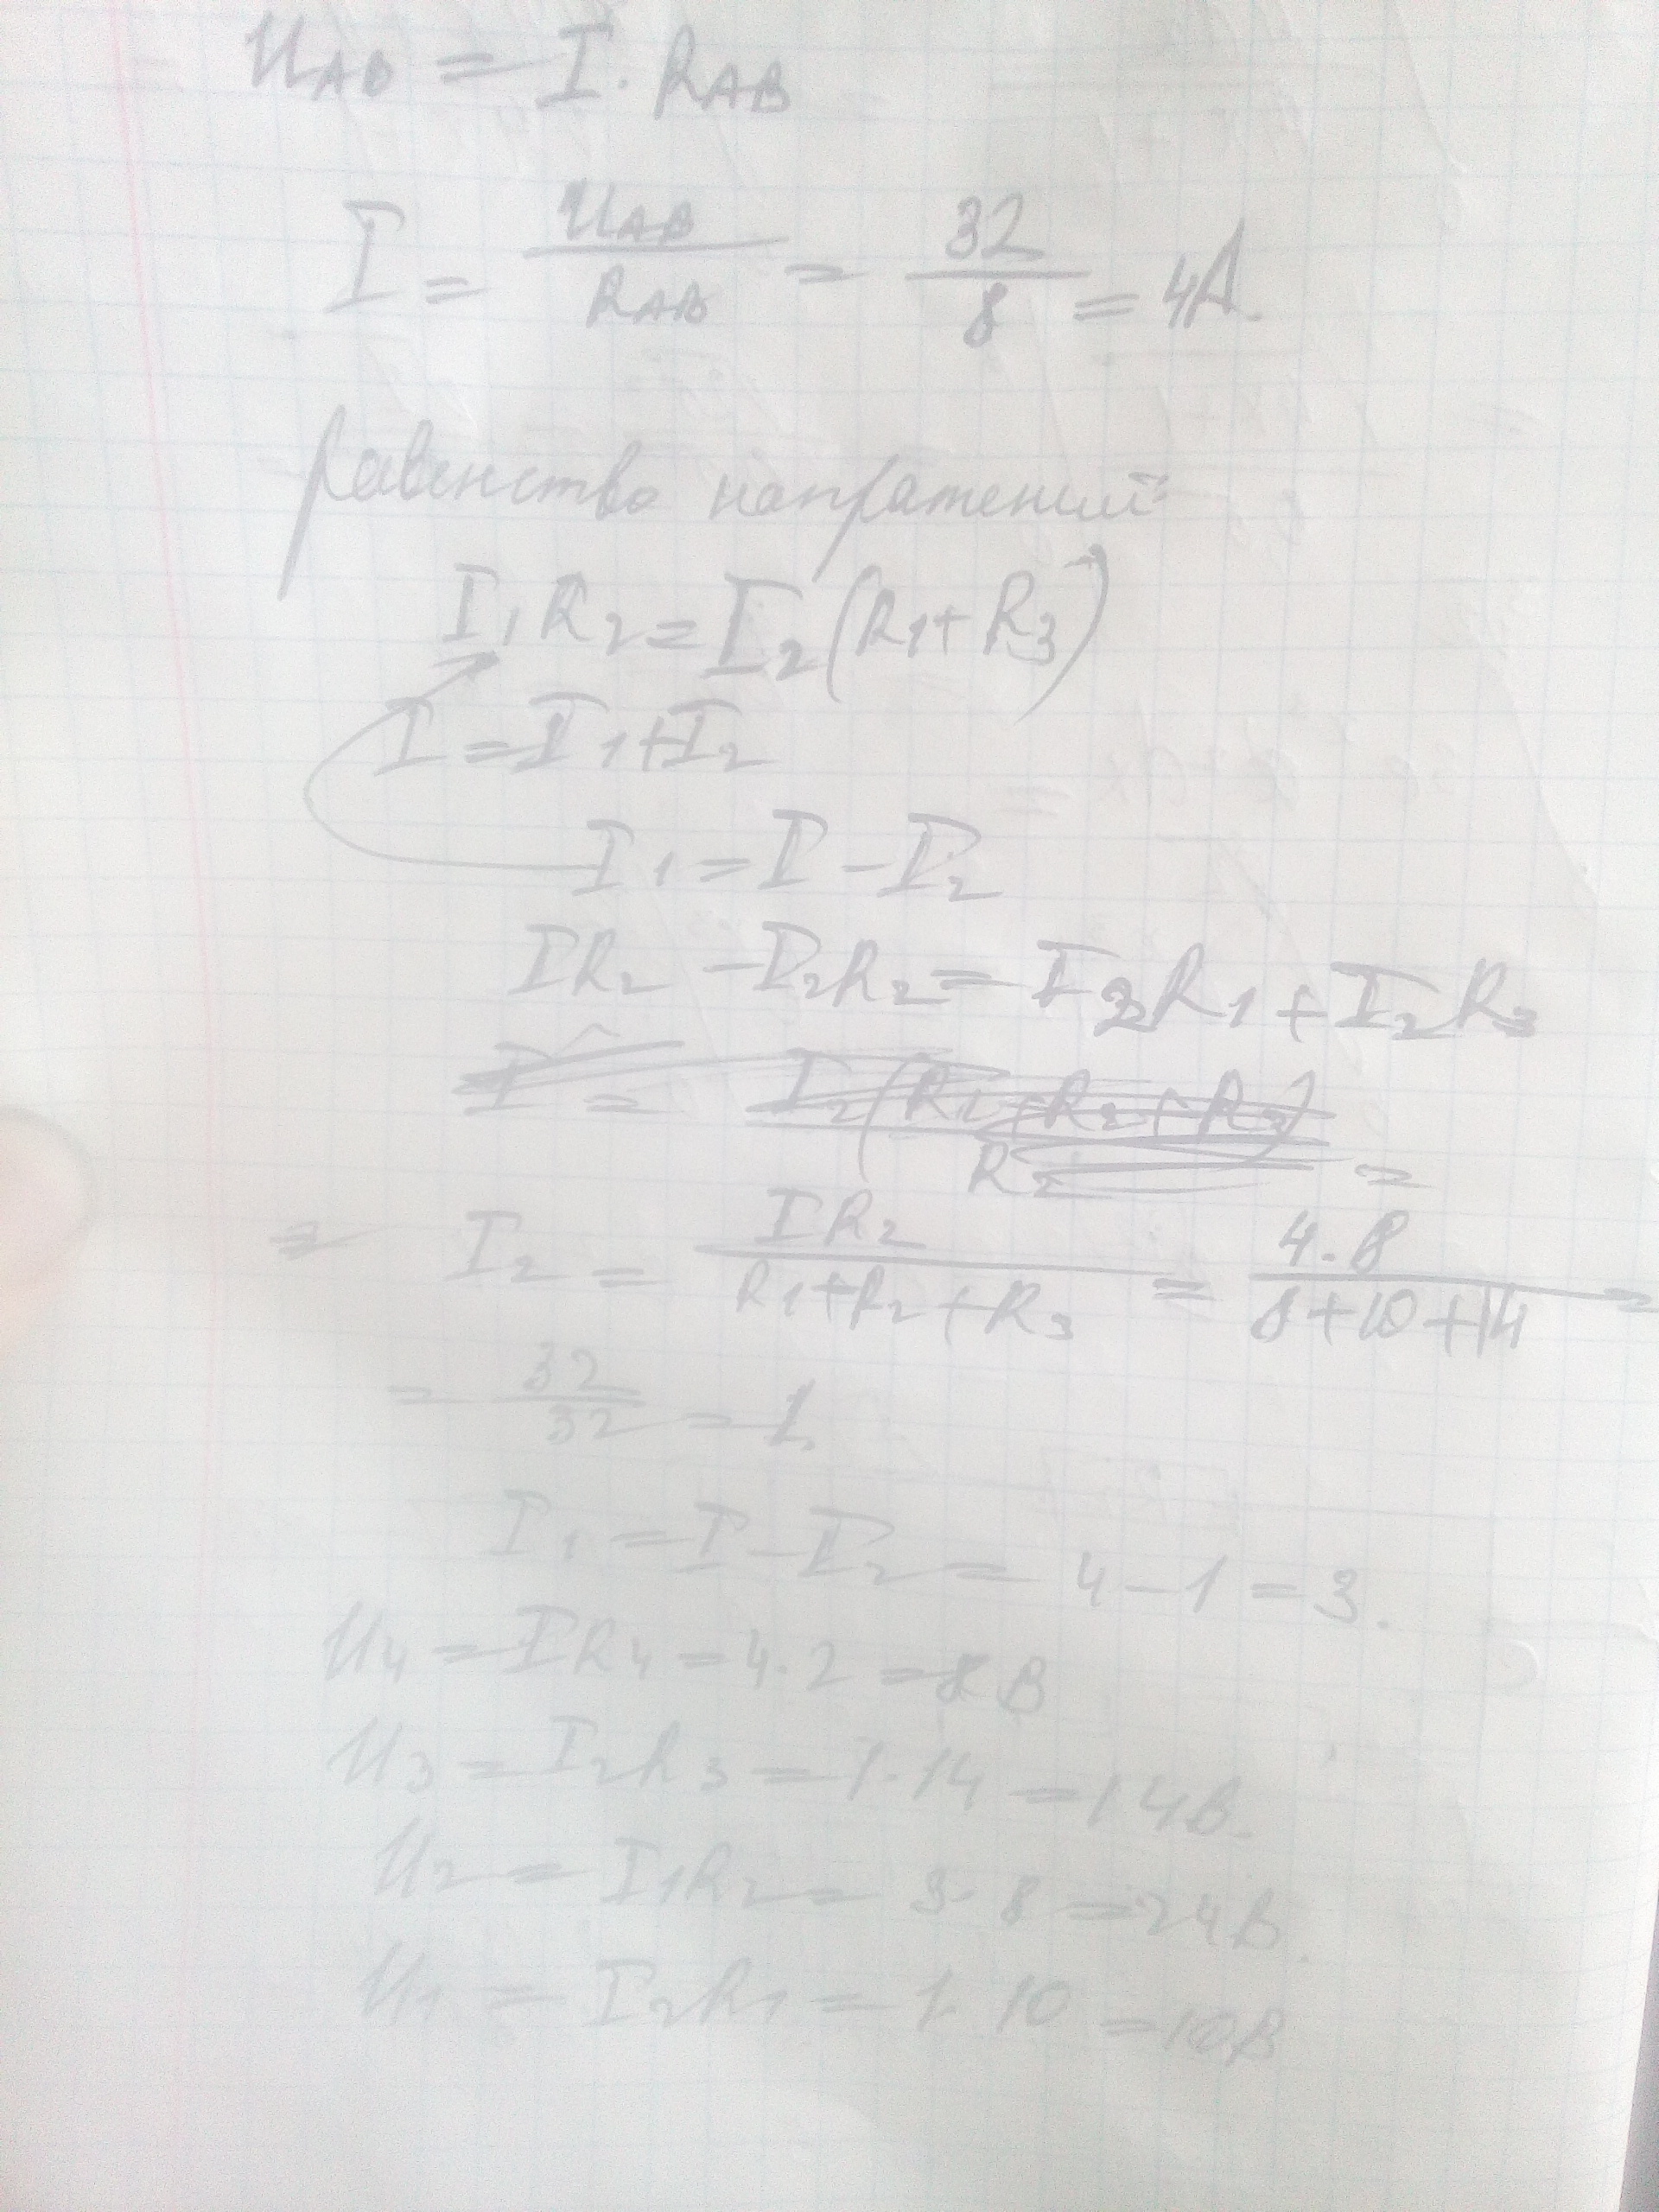 U_AB = I · R_AB
I = U_AB / R_AB = 32 / 8 = 4А.
равенство напряжений:
I₁R₂ = I₂(R₁ + R₃)
I = I₁ + I₂
I₁ = I − I₂
IR₂ − I₂R₂ = I₂R₁ + I₂R₃
I = I₂(R₁ + R₂ + R₃) / R₂ =
= I₂ = IR₂ / R₁ + R₂ + R₃ = 4 · 8 / 8 + 10 + 14 =
= 32 / 32 = 1.
I₁ = I − I₂ = 4 − 1 = 3.
U₄ = IR₄ = 4 · 2 = 8 В
U₃ = I₂R₃ = 1 · 14 = 14В.
U₂ = I₁R₂ = 3 · 8 = 24В.
U₁ = I₂R₁ = 1 · 10 = 10В